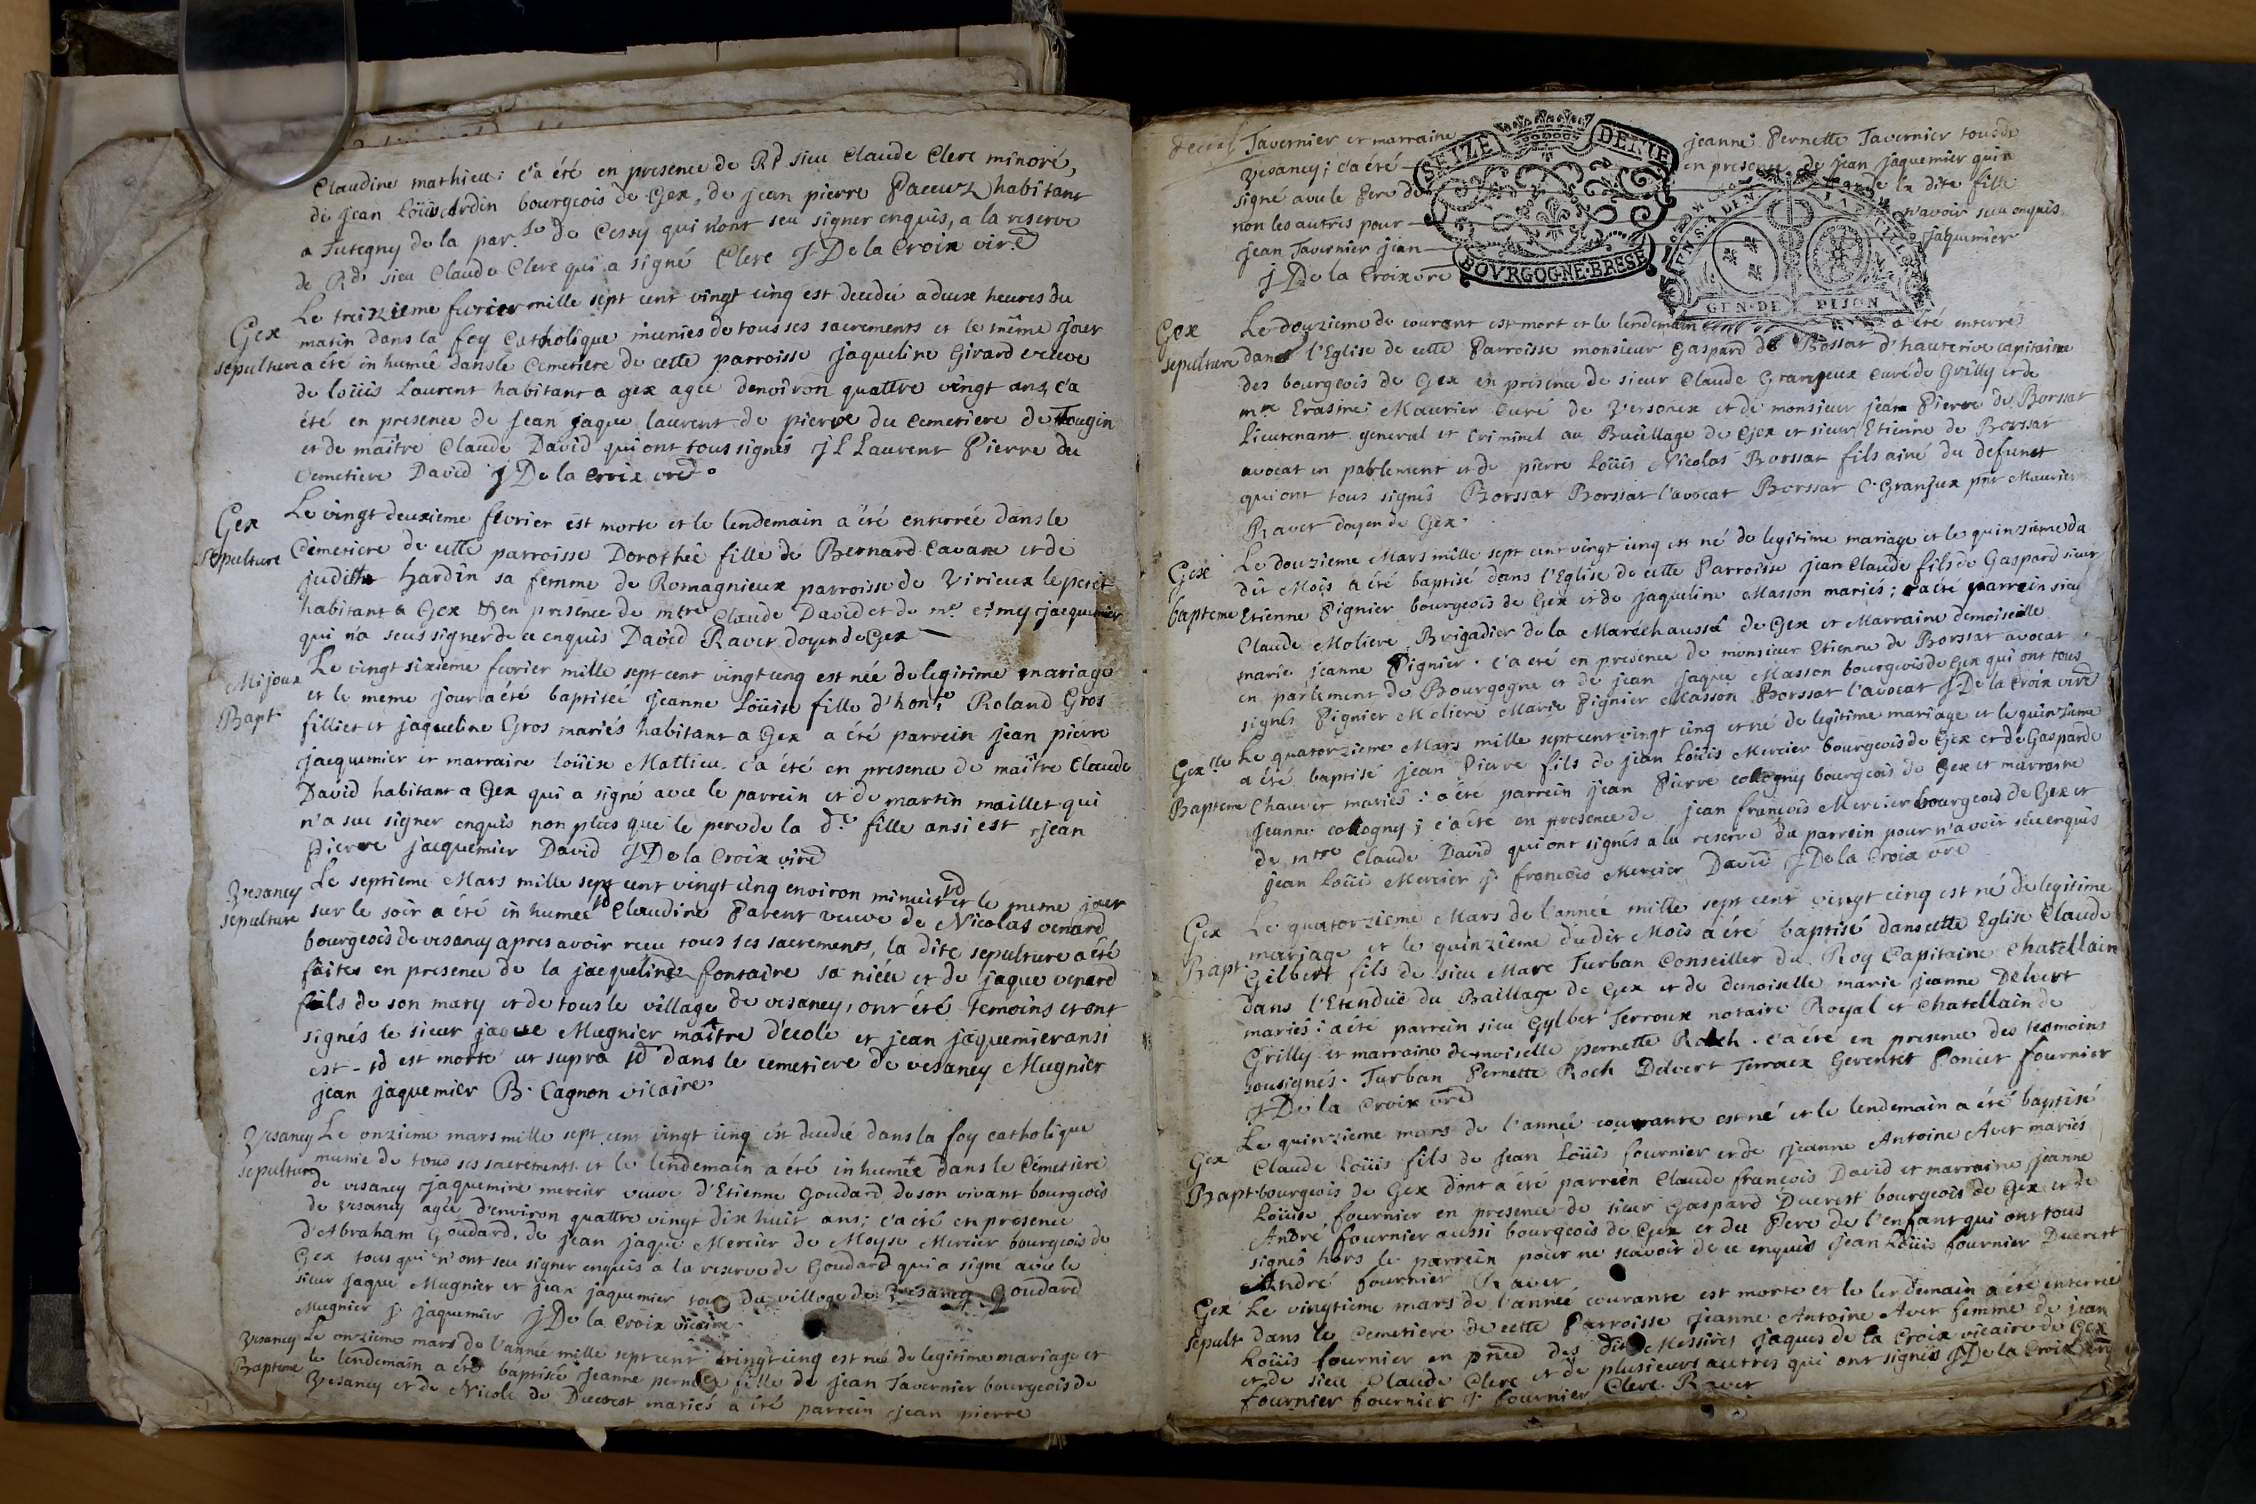 Claudine mathieu: c'a été en presence de Rd sieu Claude Clerc minoré,
de jean Loüis Ardin bourgeois de Gex, de jean pierre Paccuz habitant
a Turegny de la par.se de Cessy qui n'ont seu signer enquis, a la reserve
de Rd sieu Claude Clerc qui a signé Clerc J De la Croix vire
Gex
sepulture
Le treizieme fevrier mille sept cent vingt cinq est decedeé a deux heures du
matin dans la foy Catholique munies de tous ses sacrements et le même jour
a été in humeé dans le Cemetiere de cette parroisse jaqueline Girard veuve
de loüis Laurent habitant a gex ageé denviron quattre vingt ans, c'a
été en presence de jean jaque laurent de pierre du cemetiere de Tougin
et de maitre Claude David qui ont tous signés J L Laurent Pierre du
Cemetiere David J De la Croix vre
Gex
Sepulture
Le vingt deuxieme fevrier est morte et le lendemain a été enterrée dans le
Cemetiere de cette parroisse Dorotheé fille de Bernard Cavane et de
judithe hardin sa femme de Romagnieux parroisse de Virieux le petit
habitant a Gex & en presence de mtre Claude David et de me jacquemier
qui n'a seu signer de ce enquis David Raver doyen de Gex
Mijoux
Bapt.
Le vingt sixieme fevrier mille sept cent vingt cinq est née de legitime mariage
et le meme jour a été baptiseé jeanne Loüise fille d'hon.te Roland Gros
filliet et jaqueline Gros mariés habitant a Gex a été parrein jean pierre
jacquemier et marraine loüise Mattieu c'a été en presence de maitre Claude
David habitant a Gex qui a signé avec le parrein et de martin maillet qui
n'a sue signer enquis non plus que le pere de la de fille ansi est jean
pierre jacquemier David J De la Croix vire
Vesancy
sepulture
Le septieme Mars mille sept cent vingt cinq environ minuit et le meme jour
sur le soir a été in humeé Claudine Parent veuve de Nicolas venard
bourgeois de vesancy apres avoir receu tous ses sacrements, la dite sepulture a été
faites en presence de la jacqueline fontaine sa niéce et de jaque venard
fils de son mary et de tous le village de vesancy, ont été temoins et ont
signés le sieur jaque Mugnier maitre d'ecole et jean jaquemier ansi
est - est morte ut supra dans le cemetiere de vesancy Mugnier
jean jaquemier B. Cagnon vicaire
Vesancy
sepulture
Le onzieme mars mille sept cent vingt cinq est decedeé dans la foy catholique
munie de tous ses sacrements et le lendemain a été in humeé dans le Cemetiere
de vesancy jaquemine mercier veuve d'Etienne Goudard de son vivant bourgeois
de vesancy ageé d'environ quattre vingt dix huit ans; c'a été en presence
d'Abraham Goudard, de jean jaque Mercier de Moyse Mercier bourgeois de
Gex tous qui n'ont seu signer enquis a la reserve de Goudard qui a signé avec le
sieur jaque Mugnier et jean jaquemier tous du village de Vesancy Goudard
Mugnier j. jaquemier J De la Croix vicaire
Vesancy
Bapteme
Le onzieme mars de l'année mille sept cent vingt cinq est née de legitime mariage et
le lendemain a été baptisée jeanne pernette fille de jean Tavernier bourgeois de
Vesancy et de Nicole de Ducrest mariés a été parrein jean pierre
Tavernier et marraine jeanne Pernette Tavernier tous de
Vesancy; c'a été en presence de jean jaquemier qui a
signé avec le Pere de la dite fille
non les autres pour n'avoir sceu enquis
jean Tavernier jean jaquemier
J De la Croix vre
SEIZE DENIE
BOVRGOGNE-BRESSE
GEN·DE DIJON
Gex
sepulture
Le douzieme de courant est mort et le lendemain a été enterré
dans l'Eglise de cette Parroisse monsieur Gaspard de Borssat d'hauterive capitaine
des bourgeois de Gex en presence de sieur Claude Granjeux curé de Grilly et de
mre Erasine Maurier Curé de Versonex et de monsieur jean Pierre de Borssat
Lieutenant general et Criminel au Bailliage de Gex et sieur Etienne de Borssat
avocat en parlement et de pierre Loüis Nicolas Borssat fils ainé du defunct
qui ont tous signés Borssat Borssat l'avocat Borssat C. Granjux pnt Maurier
Raver doyen de Gex
Gex
bapteme
Le douzieme Mars mille sept cent vingt cinq est né de legitime mariage et le quinzieme du
dit Mois a été baptisé dans l'Eglise de cette Parroisse jean Claude fils de Gaspard sieur
Etienne Pignier bourgeois de Gex et de jaqueline Masson mariés; a été parrein sieu
Claude Moliere Brigadier de la Maréchaussé de Gex et Marraine demoiselle
marie jeanne Pignier. c'a été en presence de monsieur Etienne de Borssat avocat
en parlement de Bourgogne et de jean jaque Masson bourgeois de Gex qui ont tous
signés Pignier Moliere Marie Pignier Masson Borssat l'avocat J De la Croix vire
Gex
Bapteme
Le quatorzieme Mars mille sept cent vingt cinq est né de legitime mariage et le quinzieme
a été baptisé jean Pierre fils de jean Loüis Mercier bourgeois de Gex et de Gasparde
Chauvet mariés: a été parrein jean Pierre collogny bourgeois de Gex et marraine
jeanne collogny; c'a été en presence de jean françois Mercier bourgeois de Gex et
de mtre Claude David qui ont signés a la reserve du parrein pour n'avoir sceu enquis
jean Loüi Mercier j. françois Mercier David J De la Croix vre
Gex
Bapt
Le quatorzieme Mars de l'année mille sept cent vingt cinq est né de legitime
mariage et le quinzieme du dit Mois a été baptisé dans cette Eglise Claude
Gilbert fils de sieu Marc Turban Conseiller du Roy Capitaine Chatellain
dans l'Etenduë du Baillage de Gex et de demoiselle marie jeanne Delvert
mariés: a été parrein sieu Gylbert Terroux notaire Royal et Chatellain de
Grilly et marraine demoiselle pernette Roch. c'a été en presence des temoins
sousignés. Turban Pernette Roch Delvert Terroux Geventet Poncet fournier
J De la Croix vre
Gex
Bapt
Le quinzieme mars de l'année courante est né et le lendemain a été baptisé
Claude Loüis fils de jean Loüis fournier et de jeanne Antoine Aver mariés
bourgeois de Gex dont a été parrein Claude françois David et marraine jeanne
Loüise fournier en presence de sieur Gaspard Ducrest bourgeois de Gex et de
André fournier aussi bourgeois de Gex et du Pere de l'enfant qui ont tous
signés hors le parrein pour ne scavoir de ce enquis jean Loüis fournier Ducrest
André fournier Raver
Gex
sepult
Le vingtieme mars de l'année courante est morte et le lendemain a été enterreé
dans le Cemetiere de cette Parroisse jeanne Antoine Aver femme de jean
Loüis fournier en pnce des dits Messires jaques de la Croix vicaire de Gex
et de sieu Claude Clerc et de plusieurs autres qui ont signés J De la Croix vre
fournier fournier j. fournier Clerc Raver